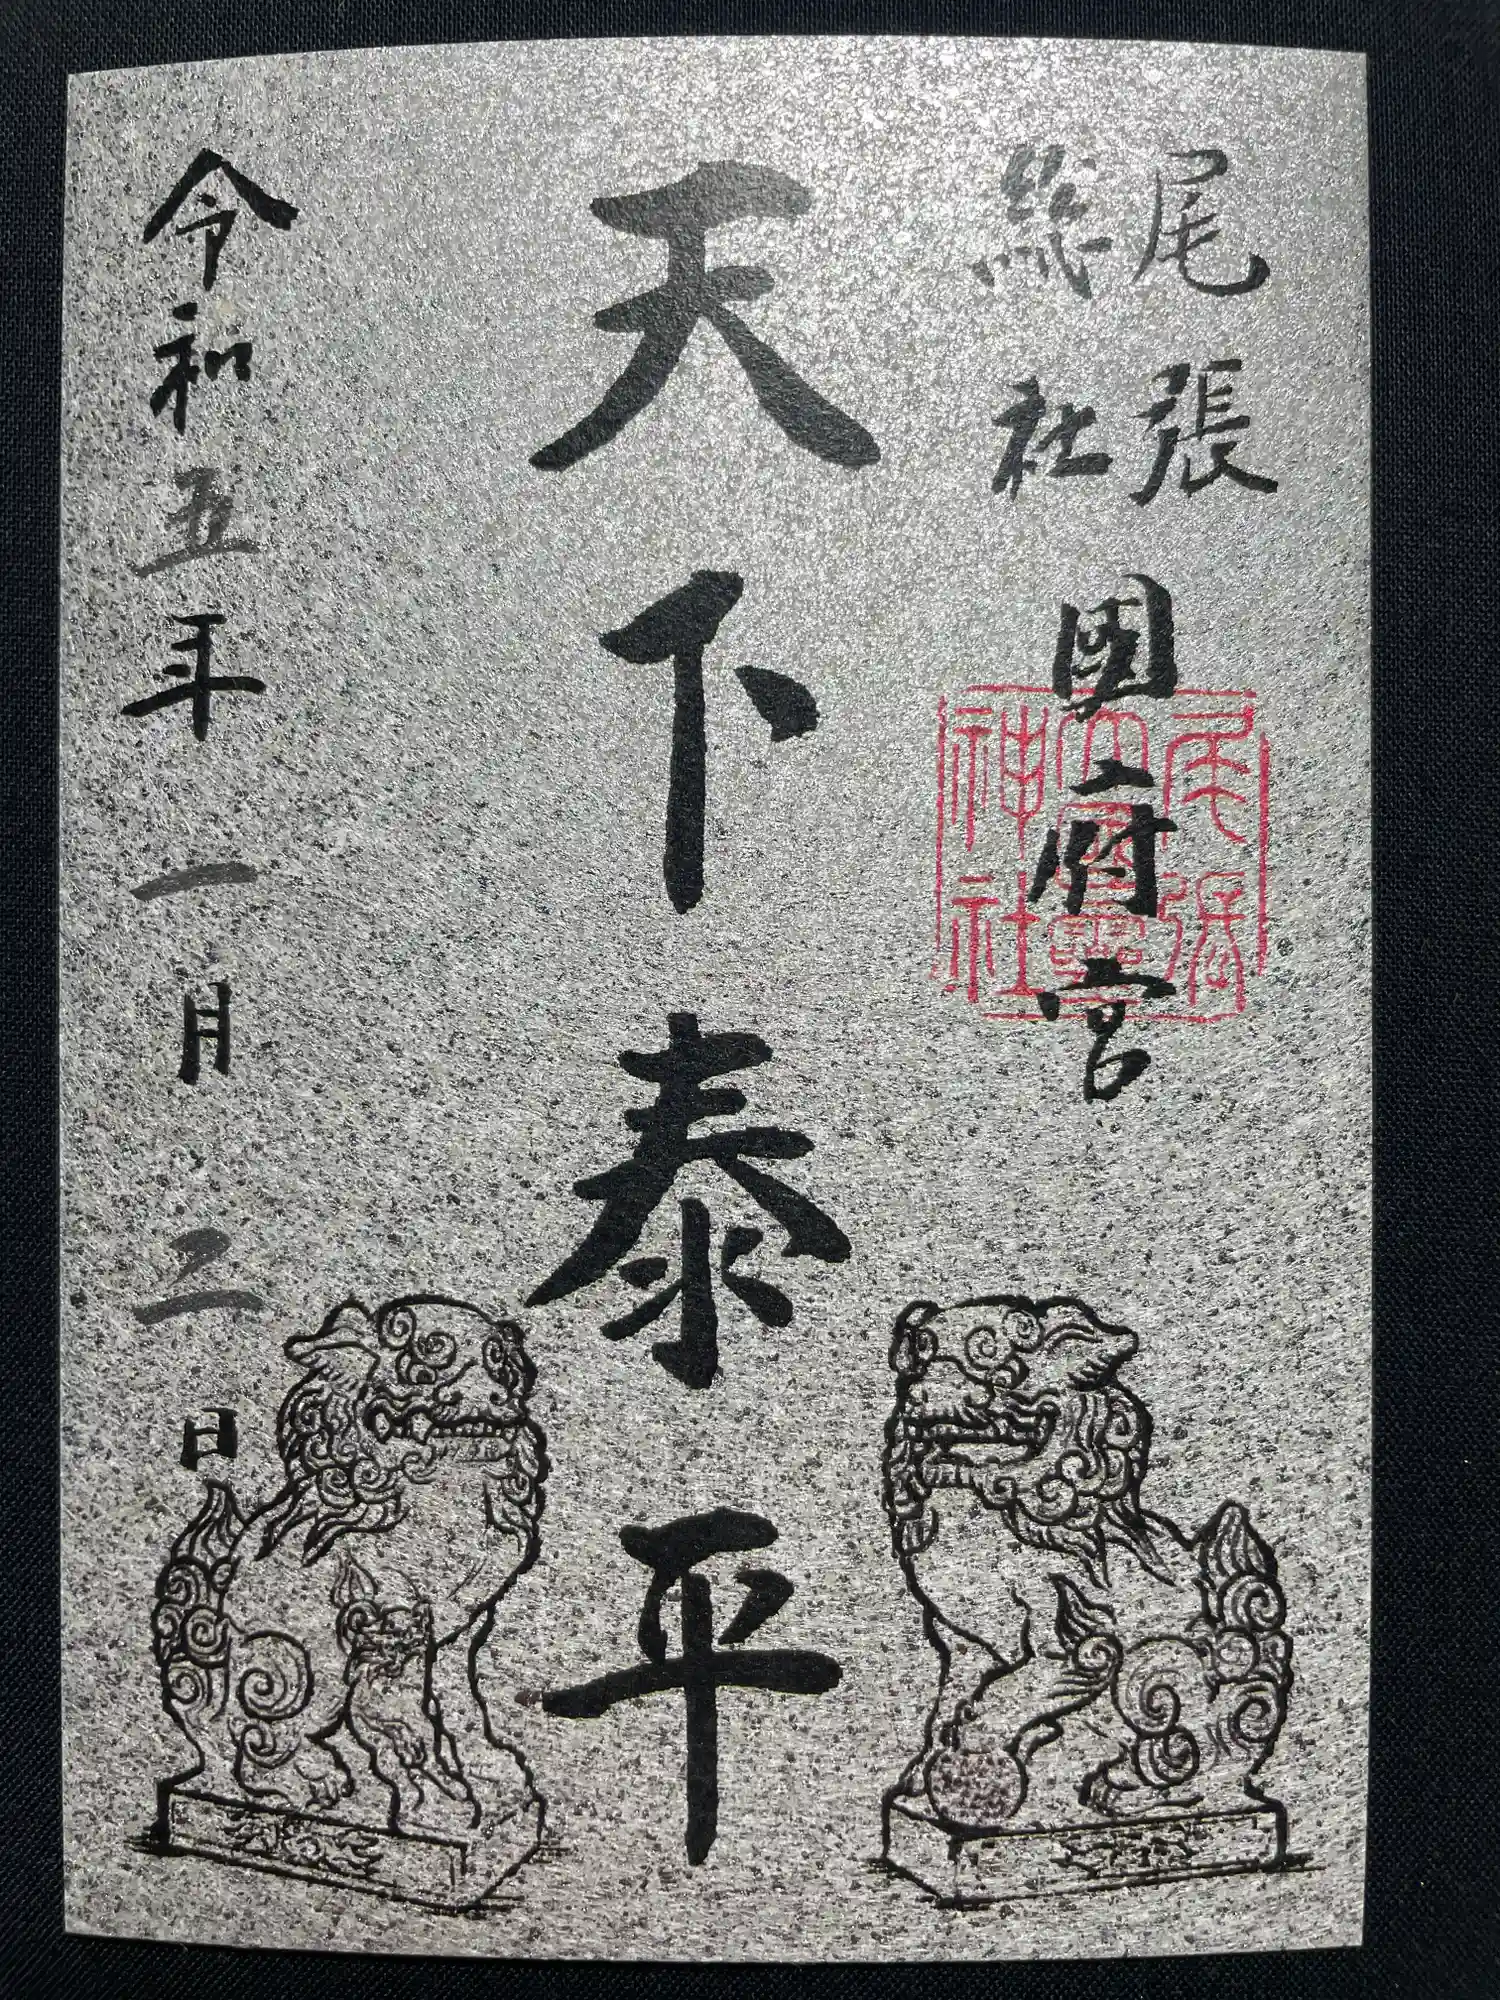 尾張
総社
國府宮
天下泰平
令和五年一月二日
尾張
大國霊
神社